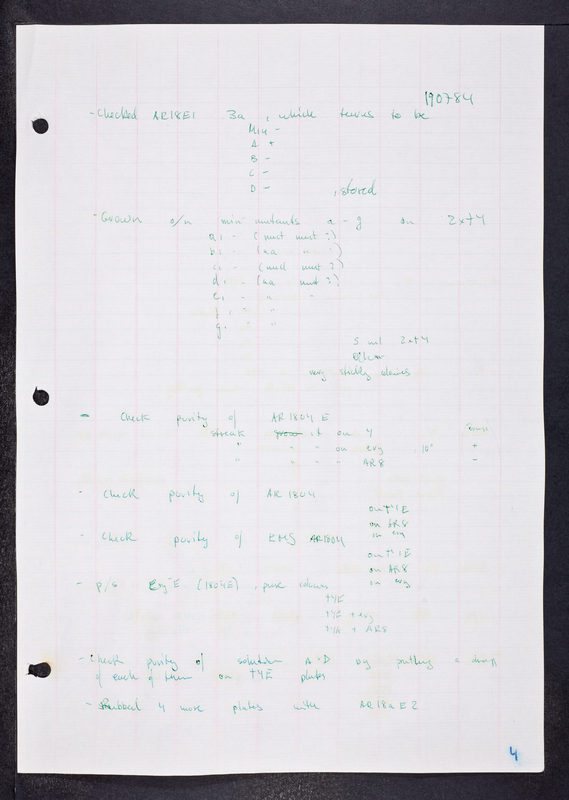 190784
- Checked AR18E1 3a, which turns to be
Min -
A +
B -
C -
D - , stored
- Grown o/n min- mutants a - g on 2xTY
a, - (nucl mut ?)
b, - (aa " )
c, - (nucl mut ?)
d, - (aa mut ?)
e, - " -
f, - "
g, - "
5 ml 2xTY
very stickly colonies
- Check purity of AR1804 E
streak it on Y
" " - on ery 10° +
" " - - AR8 -
- Check purity of AR 1804
on TYE
on AR8
in ery
- Check purity of EMS AR1804
on TYE
on AR8
in ery
- p/s Ery E (1804E), pure colonies
TYE
TYE + ery
TYE + AR8
- Check purity of solution A-D by putting a drop
of each of them on TYE plates
- Rubbed 4 more plates with AR18aE2
4